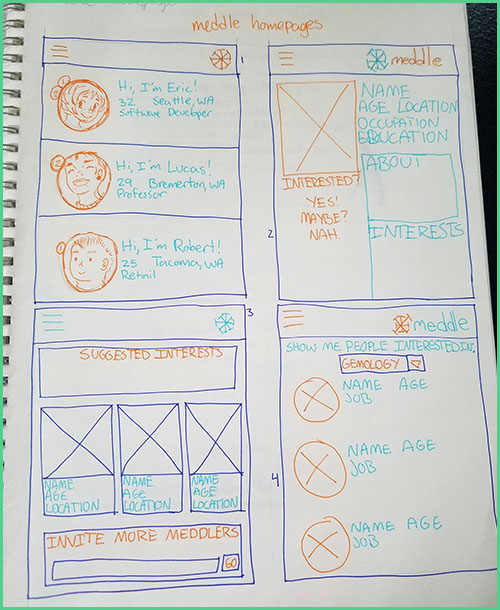 meddle homepages
1
Hi, I'm Eric!
32 Seattle, WA
Software Developer
Hi, I'm Lucas!
29 Bremerton, WA
Professor
Hi, I'm Robert!
25 Tacoma, WA
Retail
2
meddle
NAME
AGE LOCATION
OCCUPATION
EDUCATION
INTERESTED?
YES!
MAYBE?
NAH.
ABOUT
INTERESTS
3
SUGGESTED INTERESTS
NAME
AGE
LOCATION
NAME
AGE
LOCATION
NAME
AGE
LOCATION
INVITE MORE MEDDLERS
GO
4
meddle
SHOW ME PEOPLE INTERESTED IN:
GEMOLOGY
NAME AGE
JOB
NAME AGE
JOB
NAME AGE
JOB